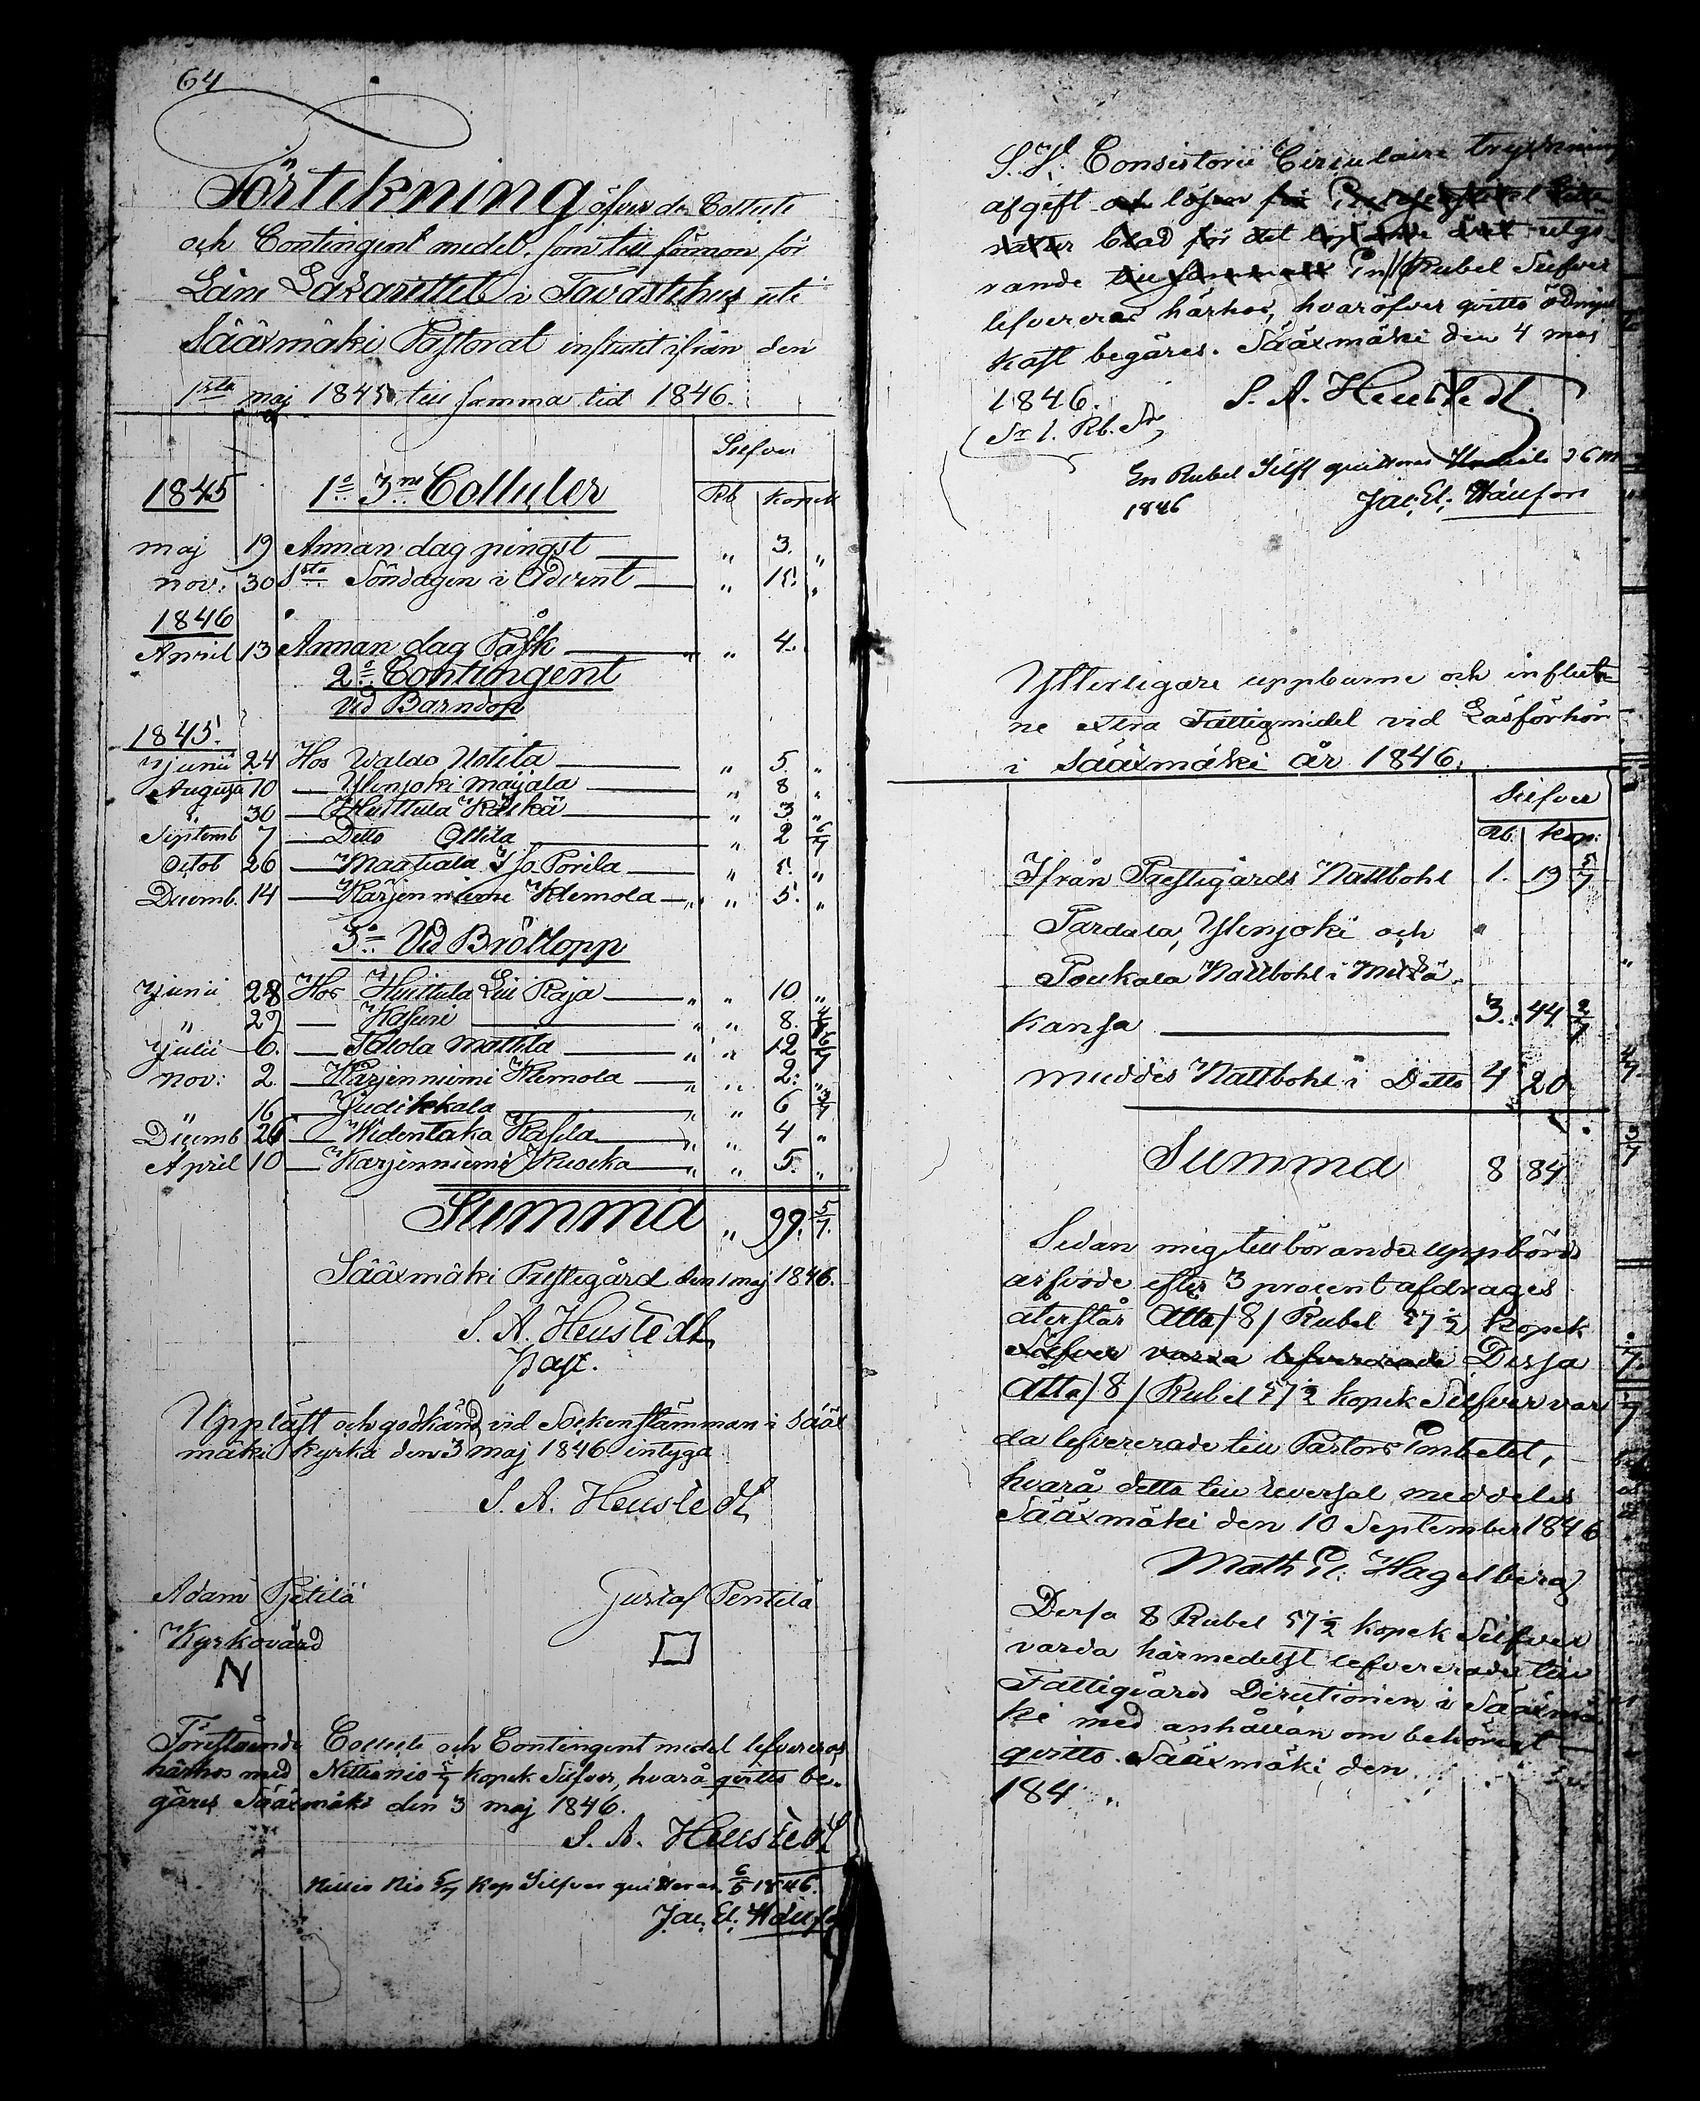 64
Förtekning öfver de Collecte
och Contingent medel, som till förmon för
Läns Lazarettet i Tavastehus uti
Sääxmäki Pastorat influtit ifrån den
1sta maj 1845 till samma tid 1846.
Silfver
1845 1o 3ne Collecter Rb kopek
maj 19 Annan dag pingst „ 3. „
nov: 30 1sta Söndagen i Advent „ 15. „
1846
April 13 Annan dag Påsk „ 4.
2o Contingent
Vid Barndop
1845.
Junii 24 Hos Waldo Uotila „ 5 „
Augusti 10 — Ylenjoki Maijala „ 8 „
„ 30 — Huittula „ 3 „
Septemb 7 — Detto Ollila „ 2 6/7
Octob 26 — Maatiala Iso Porila „ 5. „
Decemb. 14 — Kärjenniemi Klemola „ 5. „
3o Vid Bröllopp
Junii 28 Hos Huittula Lill Raja „ 10 „
„ 29 — Kasuri „ 8. 4/7
Julii 6. — Mattila „ 12 6/7
nov: 2. — Kärjenniemi Klemola „ 2: „
„ 16 — Judikkala „ 6 3/7
Decemb 26 — Kasila „ 4 „
April 10 — Karjenniemi Kuocka „ 5. „
Summa „ 99. 5/7.
Sääxmäki Prestegård den 1 maj 1846.
S. A. Heustedt
past.
Uppläst och godkänd vid Sockenstämman i Sääx
mäki Kyrka den 3 maj 1846 intyga
S. A. Heustedt
Adam Pjetilä Gustaf Pentilä
Kyrkovärd
N
Förestående Collecte och Contingent medel lefvereras
härhos med Nittionio 5/7 kopek Silfver, hvarå qvitto be-
gäres Sääxmäki den 3 maj 1846.
S. A. Heustedt
Nittio Nio 5/7 Kop Silfver quitteras 6/5 1846.
Jac. El.
Consistorii Circulaire tryckning
afgift och lösen för
blad för det utgö
rande En/1/Rubel Silfver
lefvereras härhos, hvaröfver qvitto ödmju
kast begäres. Sääxmäki den 4 maj
1846. S. A. Heustedt
Sr 1. Rb. Sr
En Rubel Silfr quitteras 6 m
1846 Jac. El.
Ytterligare uppburne och influt-
ne extra Fattigmedel vid Läsförhör
i Sääxmäki år 1846.
Silfver
Rb. Kop:
Ifrån Prestegårds Nattbohl 1. 19 5/7
Pardala, Ylenjoki och
Poukala Nattbohl i
kansa 3. 44 2/7
Nattbohl i Detto 4 20
Summa 8 84
Sedan mig tillbörande uppbörds
arfvode efter 3 procent afdrages
återstår Åtta/8/Rubel 57 1/2 kopek
Silfver varda lefvererade Dessa
Åtta/8/Rubel 57 1/2 kopek Silfver var
da lefvererade till Pastors Embetet,
hvarå detta till reversal meddeles
Sääxmäki den 10 September 1846
Math El: Hagelberg
Dessa 8 Rubel 57 1/2 kopek Silfver
varda härmedelst lefvererade till
Fattigvårds Directionen i Sääxmä
ki med anhållan om behörigt
qvitto. Sääxmäki den
184 „